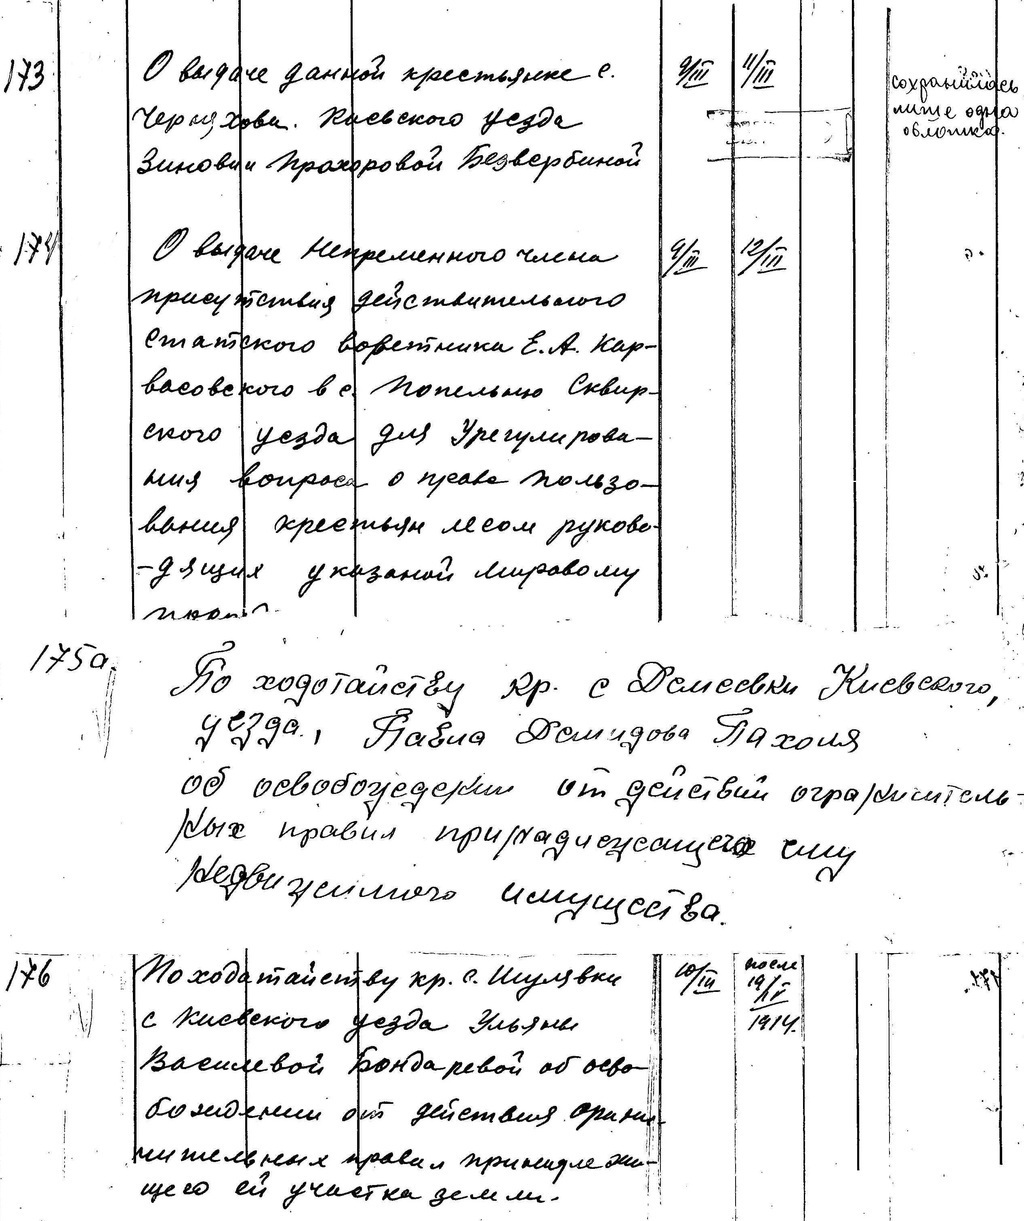 173 О выдаче данной крестьянке с. 9/III 11/III сохранилась
Черняхова. Киевского уезда лише одна
Зиновии Прохоровой Безвербиной обложка.
174 О выдаче Непременного члена 9/III 12/III
присутствия действительного
статского советника Е. А. Кар-
васовского в с. Попельню Сквир-
ского уезда для Урегулирова-
ния вопроса о праве пользо-
вания крестьян лесом руково-
-дящих указаной Мировому
175а. По ходотайству кр. с Демеевки Киевского,
уезда., Павла Демидова Пахоля
об освобождении от действий ограничитель-
ных правил принадлежащего ему
недвижимого имущества.
176 По ходатайству кр. с. Шулявки 10/III после
с Киевского уезда Ульяны 19/IV
Василевой Бондаревой об осво- 1914.
бождении от действия ограни-
чительных правил принадлежа-
щего ей участка земли.